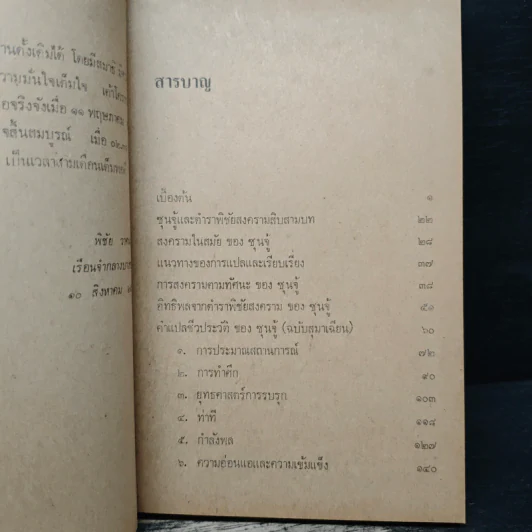 านดั้งเดิมได้ โดยมีสมาธิ
วามมั่นใจเต็มใจ
อจริงจังเมื่อ ๑๑ พฤษภาคม
จสิ้นสมบูรณ์ เมื่อ ๐๒.๓๐
เป็นเวลาสามเดือนเต็มพอดี
พิชัย
เรือนจำกลางบาง
๑๐ สิงหาคม
สารบาญ
เบื้องต้น ๑
ซุนจู้และตำราพิชัยสงครามสิบสามบท ๒๒
สงครามในสมัย ของ ซุนจู้ ๒๘
แนวทางของการแปลและเรียบเรียง ๓๗
การสงครามตามทัศนะ ของ ซุนจู้ ๓๘
อิทธิพลจากตำราพิชัยสงคราม ของ ซุนจู้ ๕๑
คำแปลชีวประวัติ ของ ซุนจู้ (ฉบับสุมาเฉียน) ๖๐
๑. การประมาณสถานการณ์ ๗๒
๒. การทำศึก ๙๐
๓. ยุทธศาสตร์การรบรุก ๑๐๓
๔. ท่าที ๑๑๘
๕. กำลังพล ๑๒๗
๖. ความอ่อนแอและความเข้มแข็ง ๑๔๐